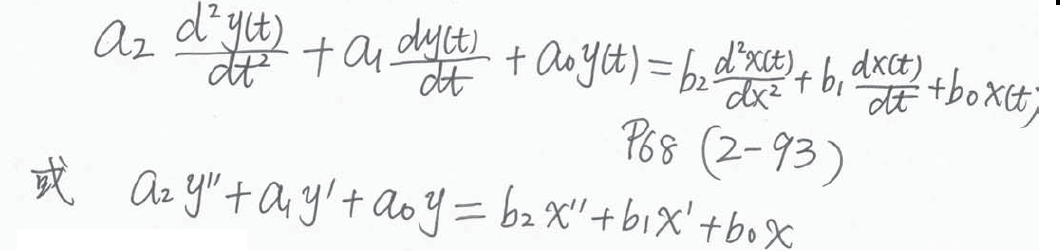 a₂ d²y(t)/dt² + a₁ dy(t)/dt + a₀y(t) = b₂ d²x(t)/dx² + b₁ dx(t)/dt + b₀x(t)
P68 (2-93)
或 a₂y″ + a₁y′ + a₀y = b₂x″ + b₁x′ + b₀x